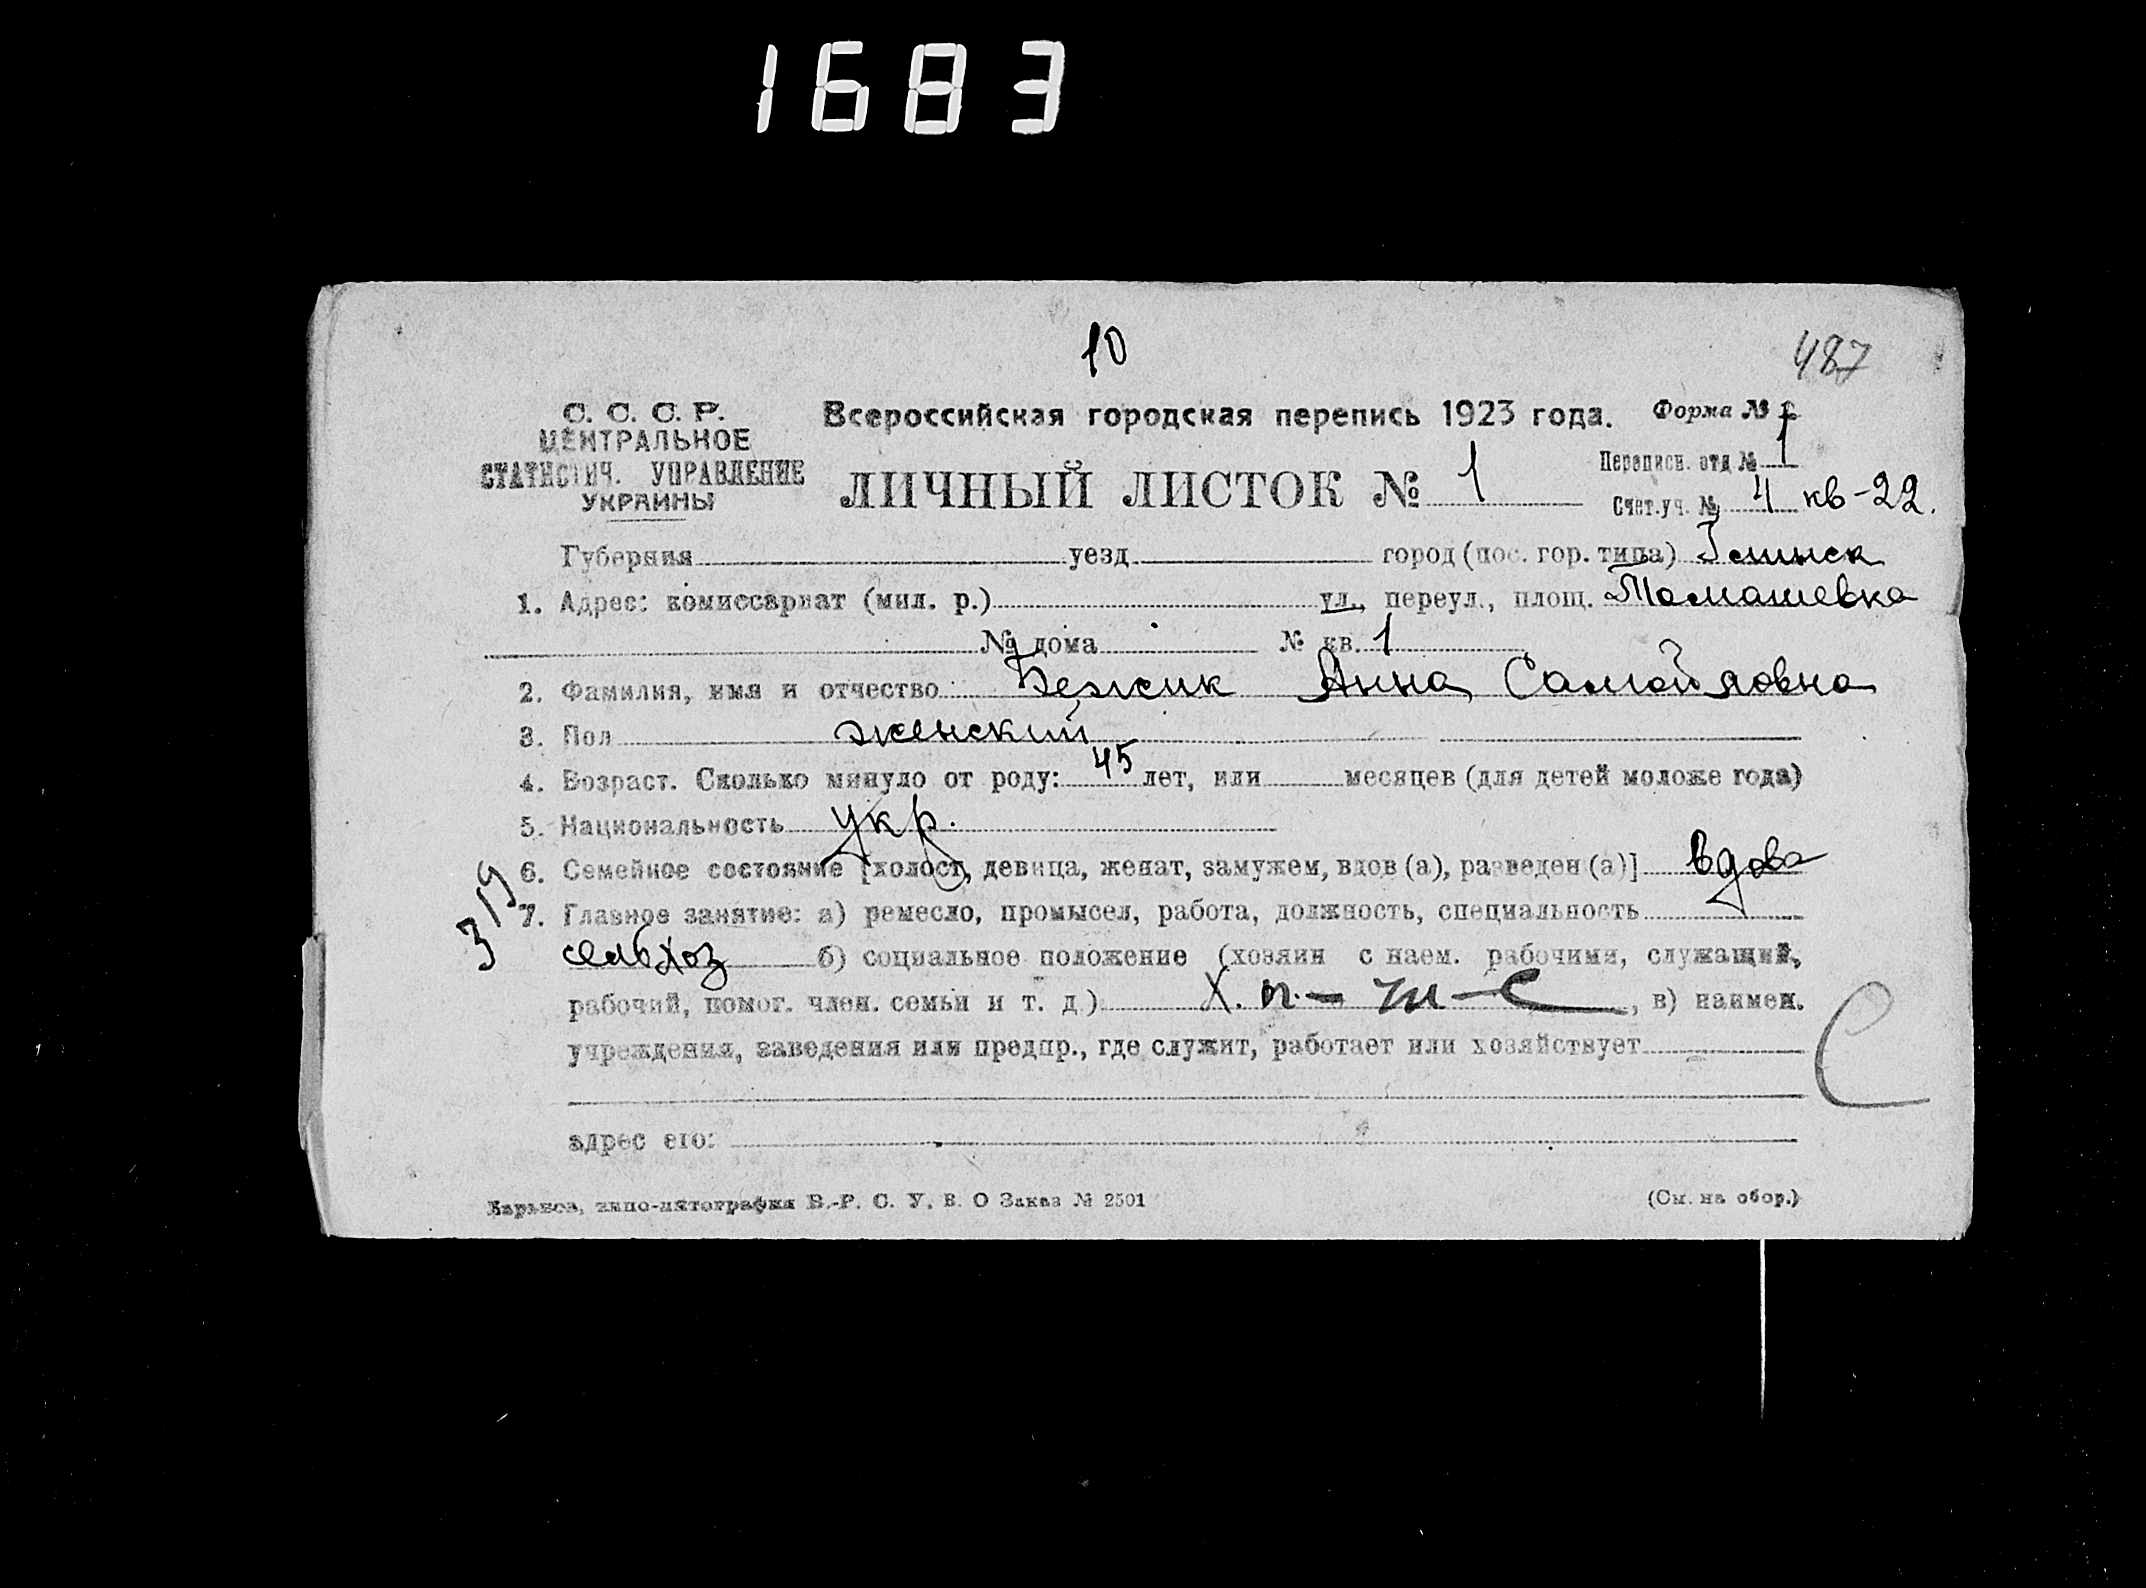 1683
10
487
С. С. С. Р.
ЦЕНТРАЛЬНОЕ
СТАТИСТИЧ. УПРАВЛЕНИЕ
УКРАИНЫ
Всероссийская городская перепись 1923 года. Форма №
ЛИЧНЫЙ ЛИСТОК № 1
Переписн. отд № 1
Счет.уч. № 4 кв-22.
Губерния уезд город (пос. гор. типа) Глинск
1. Адрес: комиссариат (мил. р.) ул., переул., площ. Томашевка
№ дома № кв. 1
2. Фамилия, имя и отчество Бежик Анна Самойловна
3. Пол женский
4. Возраст. Сколько минуло от роду: 45 лет, или месяцев (для детей моложе года)
5. Национальность укр.
6. Семейное состояние [холост, девица, женат, замужем, вдов (а), разведен (а)] вдова
319
7. Главное занятие: а) ремесло, промысел, работа, должность, специальность
сельхоз б) социальное положение (хозяин с наем. рабочими, служащий,
рабочий, помог. член. семьи и т. д) Х. п. – , в) наимен.
учреждения, заведения или предпр., где служит, работает или хозяйствует
С
адрес его:
Харьков, типо-литография В.-Р. С. У. В. О Заказ № 2501 (См. на обор.)